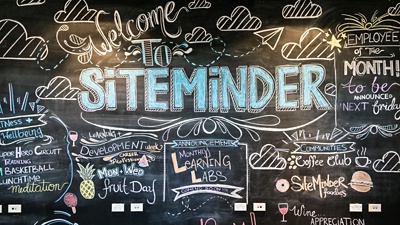 Welcome
To
SiteMinder
EMPLOYEE
OF THE
MONTH!
to be
ANNOUNCED
NEXT friday
Fitness +
Wellbeung
Hero Circuit
Training
BASKETBALL
LUNCHTIME
meditation
Learning +
DEVELOPMENT week
Mon-Wed
fruit Day
ANNOUNCEMENTS
Monthly
LEARNING
LABS
COMING SOON
COMMUNITIES
Coffee Club
SiteMinder
foodies
Wine
APPRECIATION